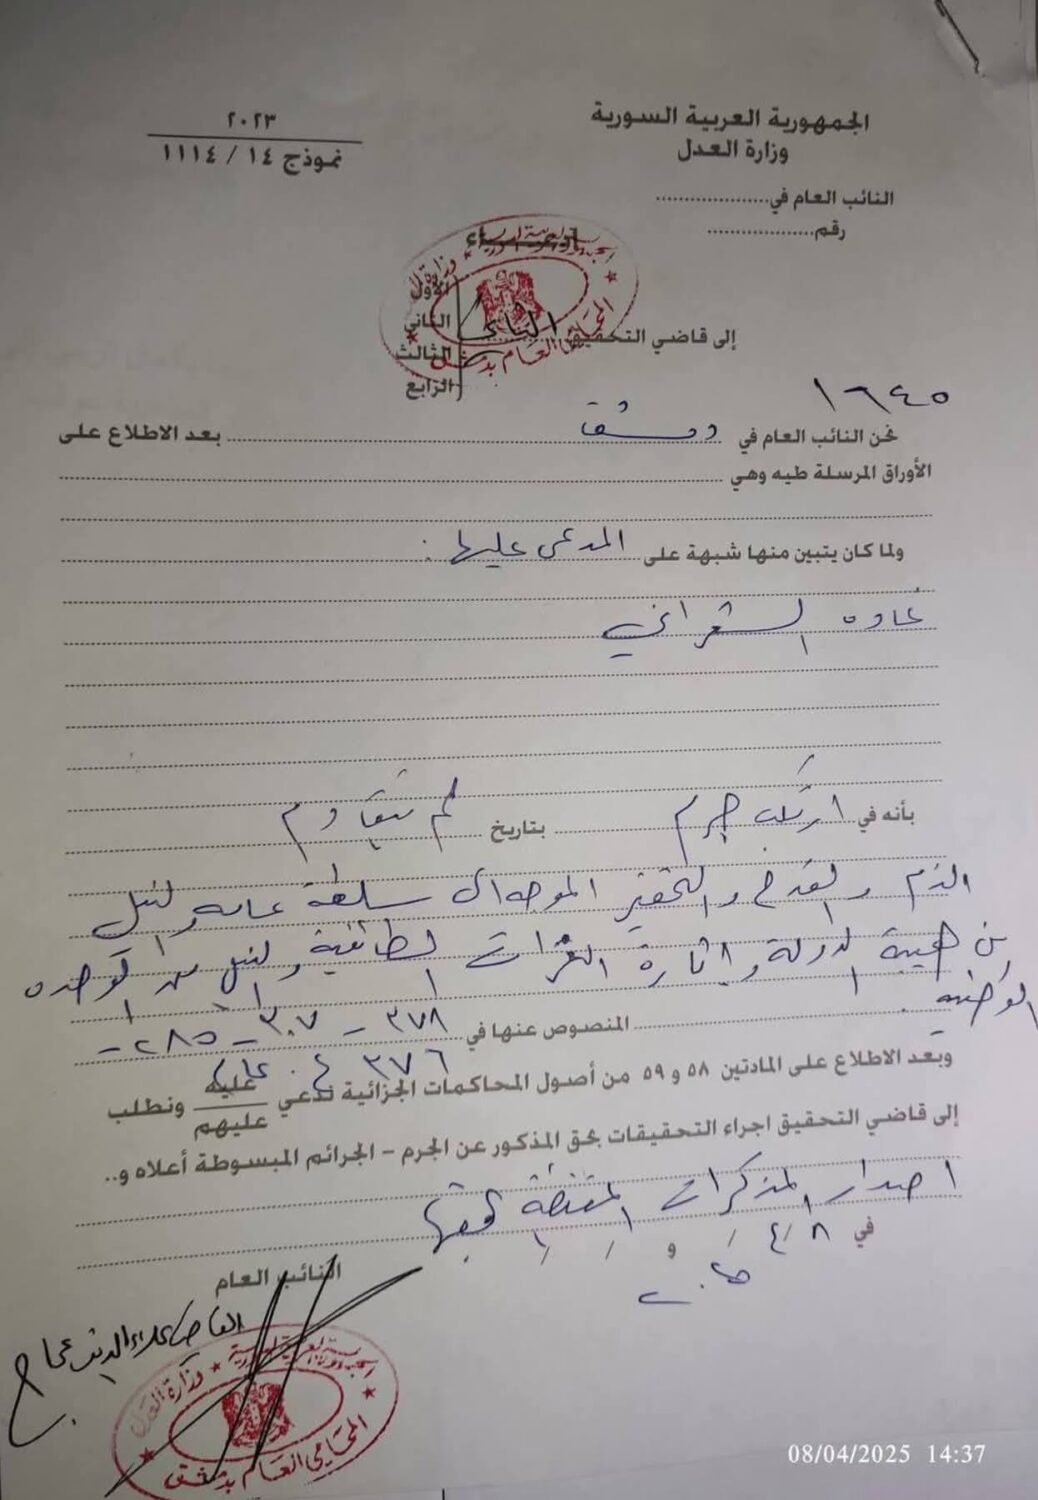 الجمهورية العربية السورية
وزارة العدل
٢٠٢٣
نموذج ١٤ / ١١١٤
النائب العام في....................
رقم...................
الأول
الثاني
الثالث
الرابع
إلى قاضي التحقيق الثاني
١٦٤٥
نحن النائب العام في دمشق بعد الاطلاع على
الأوراق المرسلة طيه وهي
ولما كان يتبين منها شبهة على المدعى عليها :
غادة الشعراني
بأنه في ارتكب جرم بتاريخ لم يتقادم
الذم والقدح والتحقير الموجه الى سلطة عامة والنيل
من هيبة الدولة واثارة النعرات الطائفية والنيل من الوحدة
الوطنية
المنصوص عنها في ٣٧٨ - ٣٠٧ - ٢٨٥ -
٣٧٦ ع. عام
وبعد الاطلاع على المادتين ٥٨ و ٥٩ من أصول المحاكمات الجزائية ندعي عليه ونطلب
عليهم
إلى قاضي التحقيق اجراء التحقيقات بحق المذكور عن الجرم - الجرائم المبسوطة أعلاه و..
اصدار المذكرات المقتضة بحقها
في ٨ / ٤ / و / /
٢٠٢٥
النائب العام
القاضي
الجمهورية العربية السورية
وزارة العدل
المحامي العام بدمشق
08/04/2025 14:37